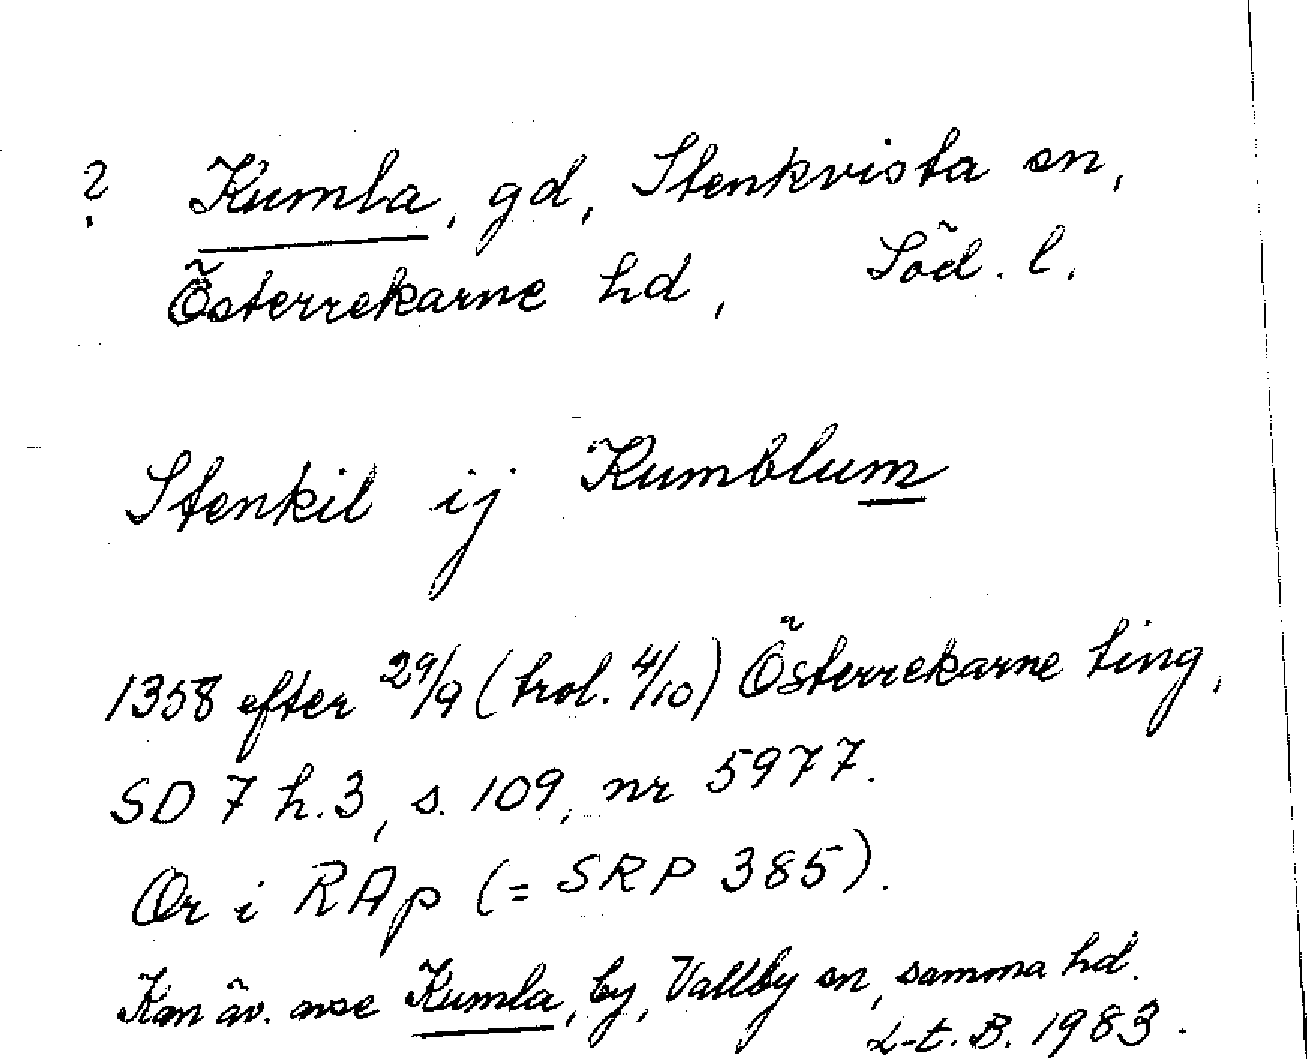 ? Kumla, gd, Stenkvista sn,
Österrekarne hd, Söd. l.
Stenkil ij Kumblum
1358 efter 29/9 (trol. 4/10) Österrekarne ting,
SD 7 h.3, s. 109, nr 5977.
Or i RAp (= SRP 385).
Kan äv. avse Kumla, by, Vallby sn, samma hd.
L-t. B. 1983.